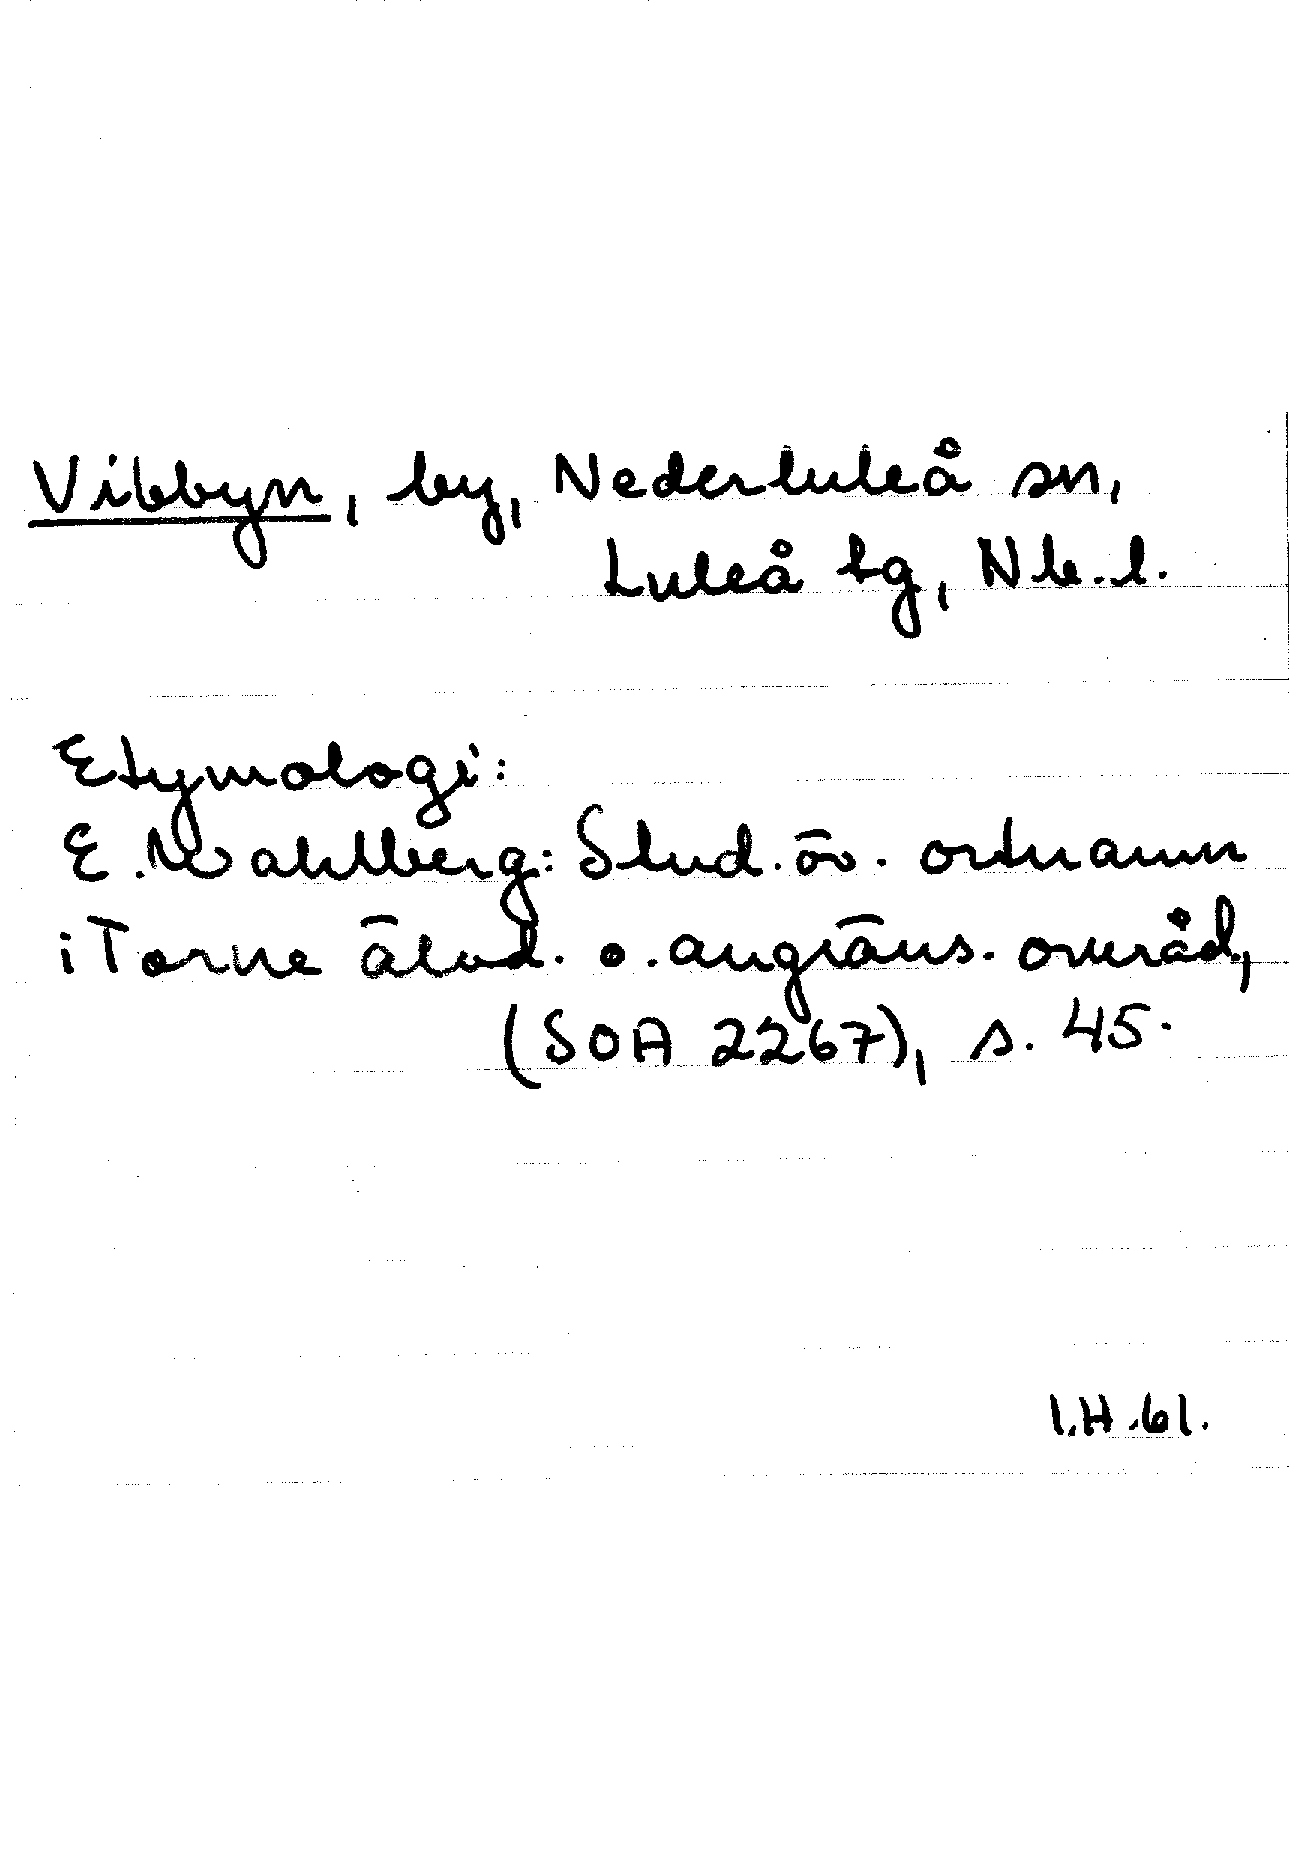 Vibbyn, by, Nederluleå sn,
Luleå tg, Nb.l.
Etymologi:
E. Wahlberg: Stud. öv. ortnamn
i Torne älvd. o. angräns. områd,
(SOA 2267), s. 45.
I.H.61.